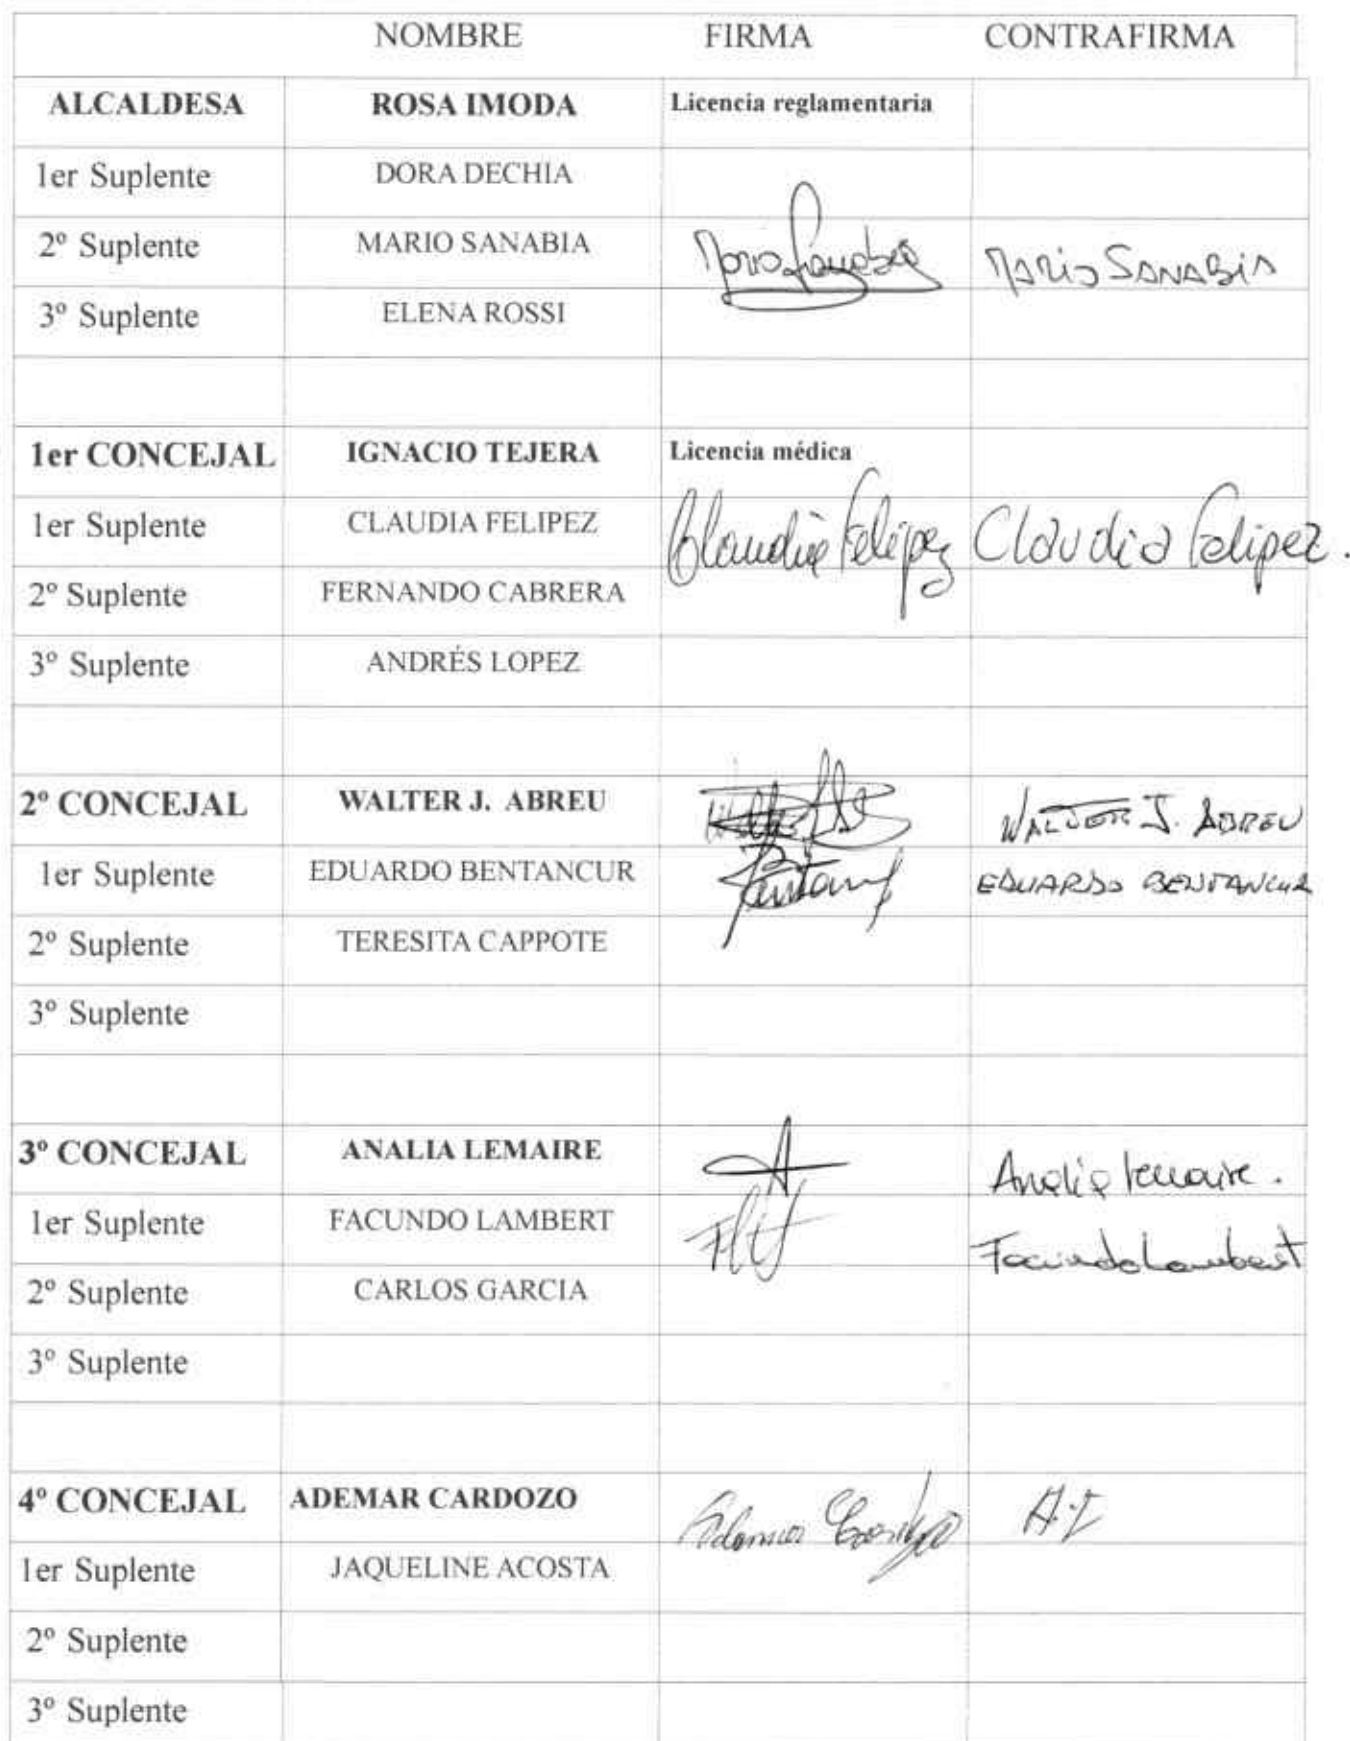 NOMBRE FIRMA CONTRAFIRMA
ALCALDESA ROSA IMODA Licencia reglamentaria
1er Suplente DORA DECHIA
2º Suplente MARIO SANABIA Mario Sanabia MARIO SANABIA
3º Suplente ELENA ROSSI
1er CONCEJAL IGNACIO TEJERA Licencia médica
1er Suplente CLAUDIA FELIPEZ Claudia Felipez Claudia Felipez.
2º Suplente FERNANDO CABRERA
3º Suplente ANDRÉS LOPEZ
2º CONCEJAL WALTER J. ABREU WALTER J. ABREU
1er Suplente EDUARDO BENTANCUR EDUARDO BENTANCUR
2º Suplente TERESITA CAPPOTE
3º Suplente
3º CONCEJAL ANALIA LEMAIRE Analia Lemaire.
1er Suplente FACUNDO LAMBERT Facundo Lambert
2º Suplente CARLOS GARCIA
3º Suplente
4º CONCEJAL ADEMAR CARDOZO Ademar Cardozo
1er Suplente JAQUELINE ACOSTA
2º Suplente
3º Suplente